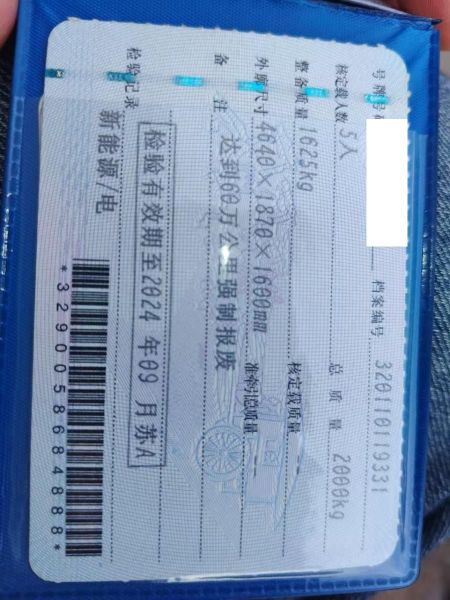 号牌号码 档案编号 320110119331
核定载人数 5人 总质量 2000kg
整备质量 1625kg 核定载质量
外廓尺寸 4640×1870×1600mm 准牵引总质量
备注 达到60万公里强制报废
检验有效期至2024年09月苏A
检验记录
新能源/电
*3290058684888*